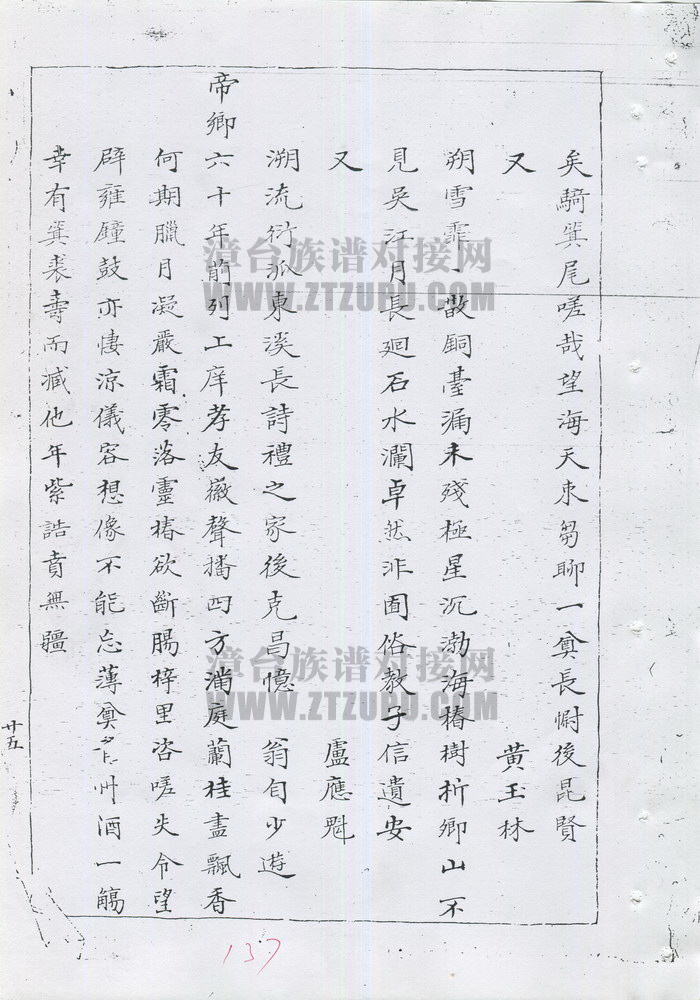 矣騎箕尾嗟哉望海天朿芻聊一奠長慟後昆賢
又　黄玉林
朔雪霏〻散銅臺漏未殘極星沉渤海椿樹折鄉山不
見吳江月長廻石水瀾卓然非囿俗教子信遺安
又　盧應魁
溯流衍派東溪長詩禮之家後克昌憶　翁自少遊
帝鄉六十年前列上庠孝友徽聲播四方滿庭蘭桂盡飄香
何期臘月凝嚴霜零落靈椿欲斷腸梓里咨嗟失令望
辟雍鐘鼓亦悽涼儀容想像不能忘薄奠州酒一觴
幸有箕裘壽而臧他年紫誥賁無疆
廿五
137
漳台族谱对接网
WWW.ZTZUPU.COM
漳台族谱对接网
WWW.ZTZUPU.COM